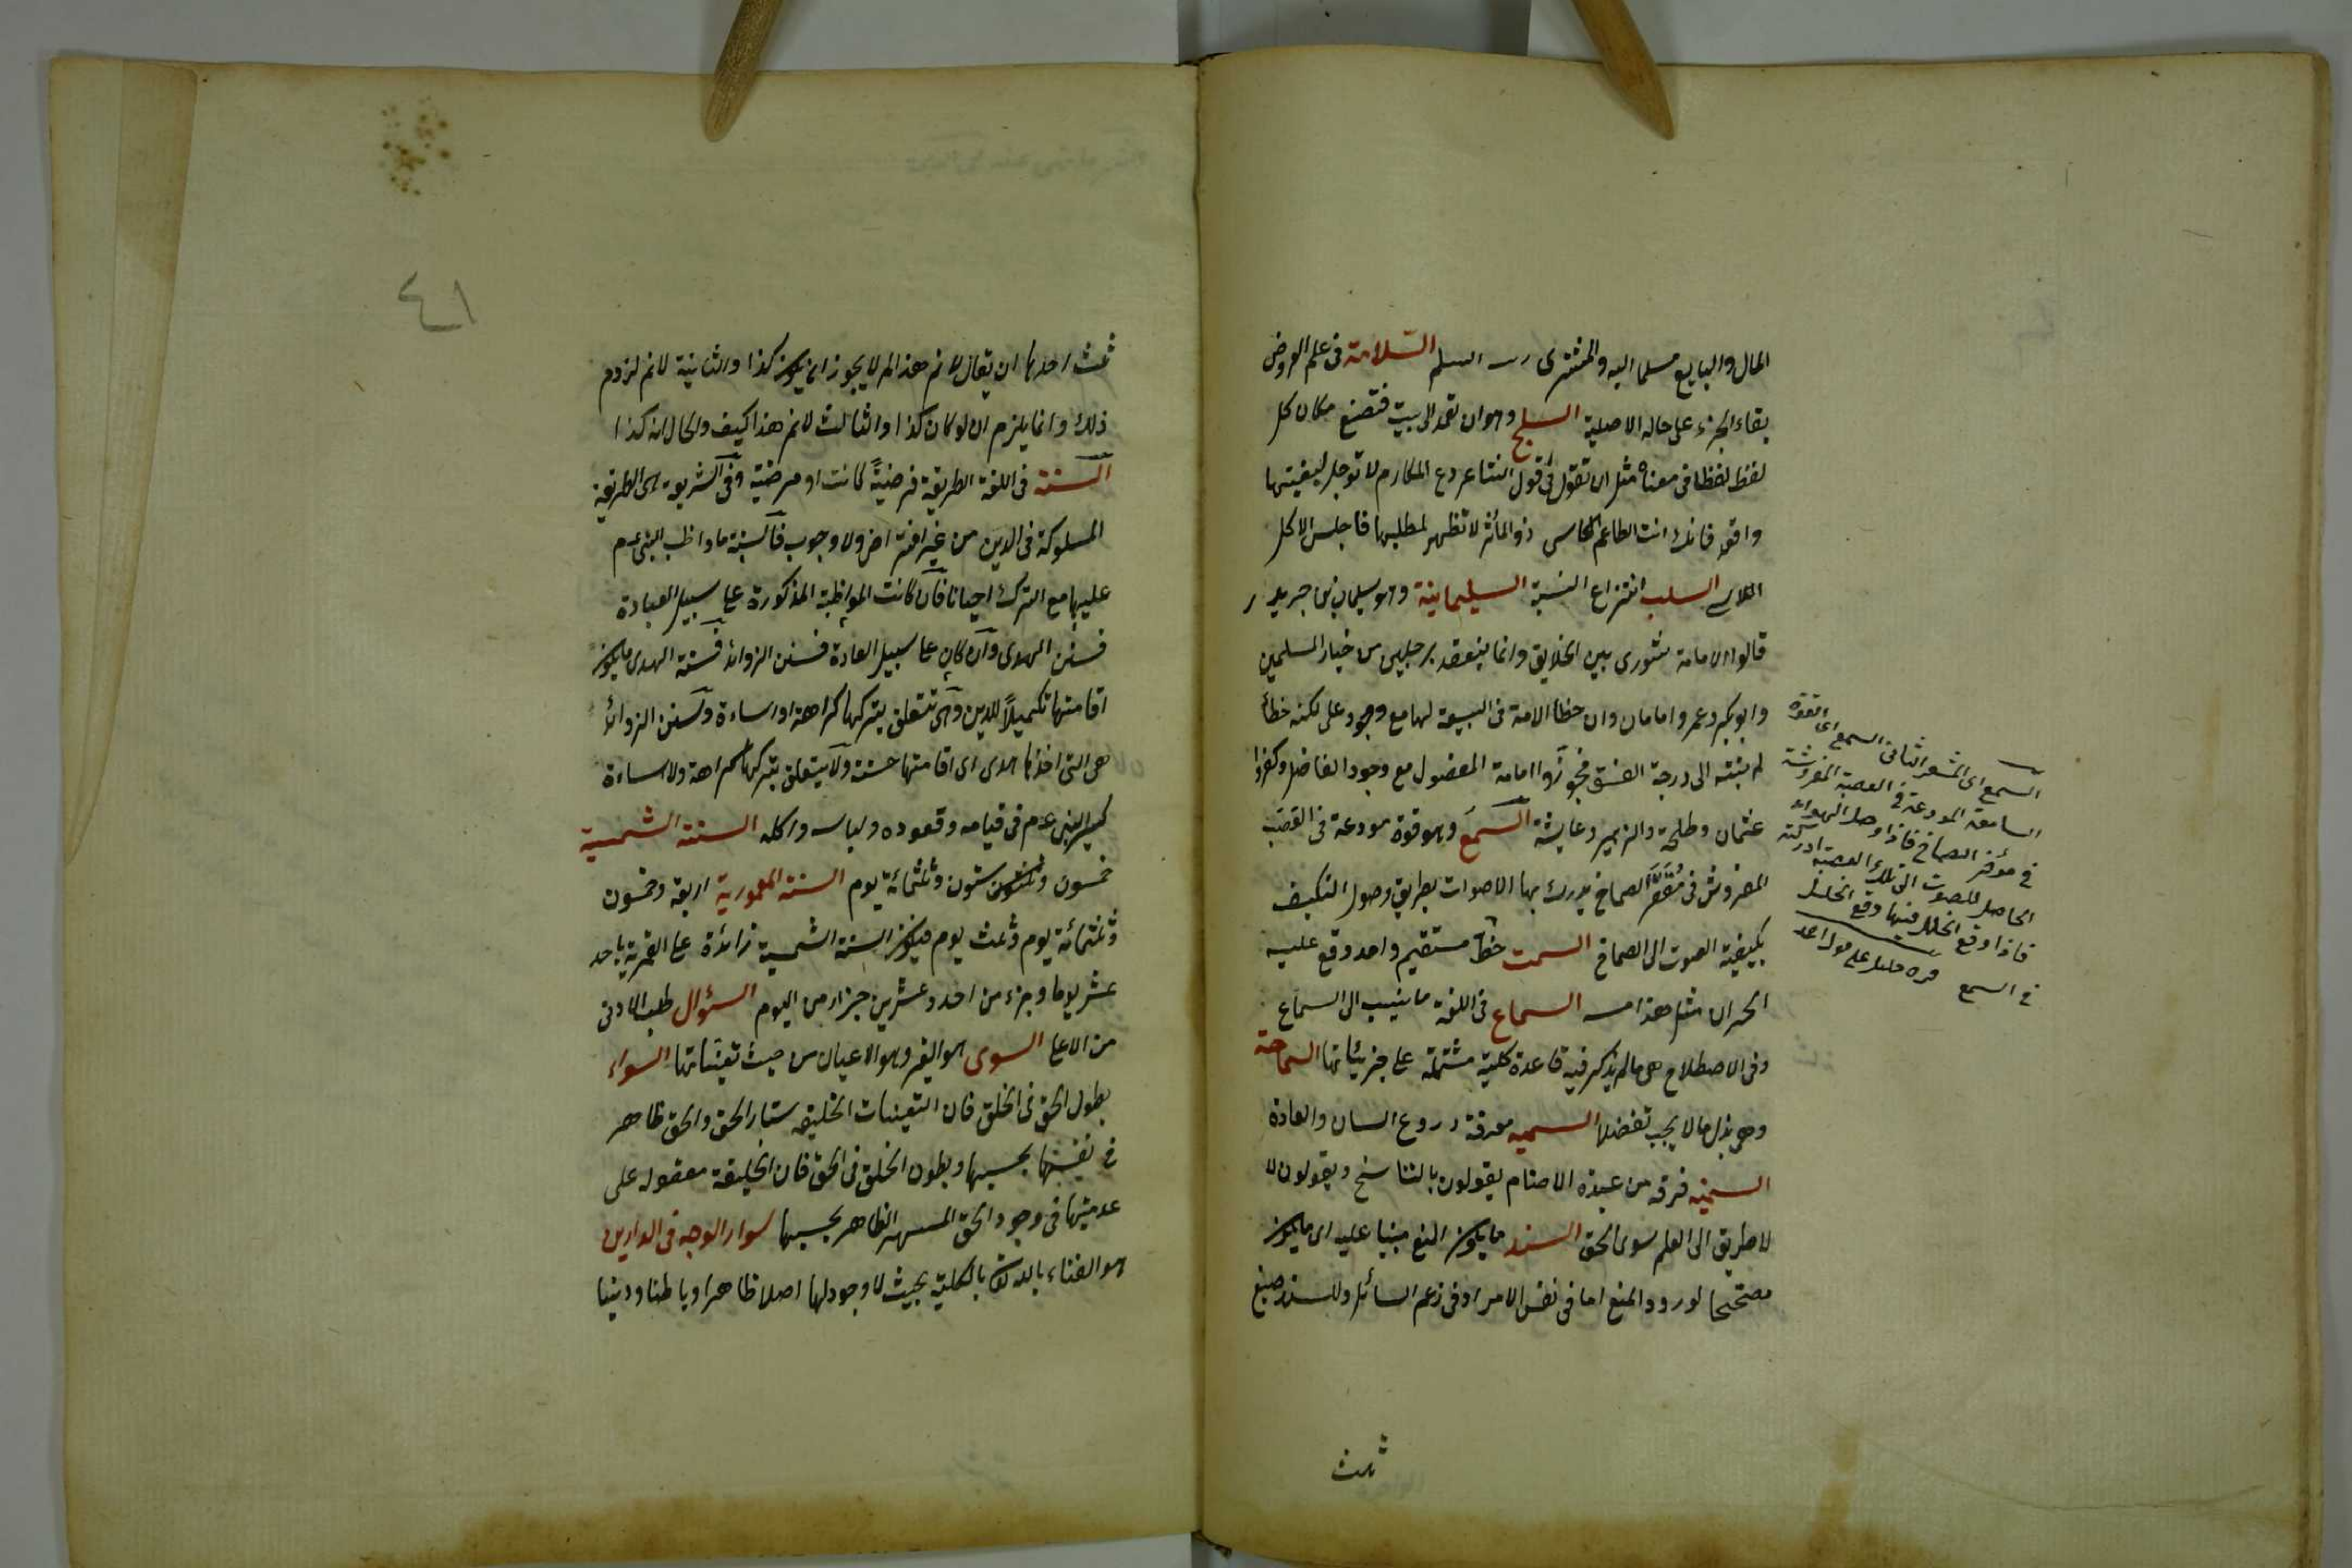 المال والبايع مسلما اليه والمشترى رب السلم السّلامة فى علم العروض
بقاء الجزء على حاله الاصلية السلخ وهو ان تعمد الى بيت فتضع مكان كل
لفظ لفظا فى معناه مثل ان تقول فى قول الشاعر دع المكارم لا ترحل لبغيتها
واقعد فانك انت الطاعم الكاسى ذر المآثر لا تظهر لمطلبها فاجلس الاكل
السلب انتزاع النسبة السليمانية وهو سليمان بن جرير
قالوا الامامة شورى بين الخلايق وانما ينعقد برجلين من خيار المسلمين
وابو بكر وعمر امامان وان خطا الامة فى البيعة لهما مع وجود على لكنه خطأ
لم ينته الى درجة الفسق فجوّزوا امامة المفضول مع وجود الفاضل وكفروا
عثمان وطلحة والزبير وعايشة السمع وهو قوة مودعة فى العصب
المفروش فى مقعّر الصماخ يدرك بها الاصوات بطريق وصول التكيف
بكيفية الصوت الى الصماخ السمت خط مستقيم واحد وقع عليه
الحيزان مثل هذا السماع فى اللغة ما ينسب الى السماع
وفى الاصطلاح هى ما لم يذكر فيه قاعدة كلية مشتملة على جزئياتها السماحة
وهى بذل ما لا يجب تفضلا السمية معرفة
السمنية فرقة من عبدة الاصنام يقولون بالتناسخ ويقولون لا
لا طريق الى العلم سوى الحق السند ما يكون المنع مبنيا عليه اى ما يكون
مصححا لورود المنع اما فى نفس الامر او فى زعم السائل وللسند صيغ
السمع اى المشعر الثانى السمع اى القوة
السامعة المودعة فى العصبة المفروشة
فى مؤخر الصماخ فاذا وصل الهواء
الحاصل للصوت الى تلك العصبة ادركته
فاذا وقع الخلل فيها وقع الخلل
فى السمع قره خليل على
ثلث
ثلث احدها ان يقال لا نم هذا لم لا يجوز ان يكون كذا والثانية لا نم لزوم
ذلك وانما يلزم ان لو كان كذا والثالث لا نم هذا كيف والحال انه كذا
السنة فى اللغة الطريقة مرضيةً كانت او مرضية وفى الشريعة هى الطريقة
المسلوكة فى الدين من غير افتراض ولا وجوب فالسنة ما واظب النبى عم
عليها مع الترك احيانا فان كانت المواظبة المذكورة على سبيل العبادة
فسنن الهدى وان كان على سبيل العادة فسنن الزوائد فسنة الهدى ما يكون
اقامتها تكميلاً للدين وهى تتعلق بتركها كراهة او اساءة وسنن الزوائد
هى التى اخذها هدى اى اقامتها حسنة ولا يتعلق بتركها كراهة ولا اساءة
كسير النبى عم فى قيامه وقعوده ولباسه واكله السنة الشمسية
خمسون وستون وثلثمائة يوم السنة القمرية اربعة وخمسون
وثلثمائة يوم وثلث يوم فيكون السنة الشمسية زائدة على القمرية باحد
عشر يوما وجزء من احد وعشرين جزأ من اليوم السؤال طلب الادنى
من الاعلى السوى هو الغير وهو الاعيان من حيث تعيناتها السواء
بطون الحق فى الخلق فان التعينات الخلقية ستار الحق والحق ظاهر
فى نفسها بحسبها وبطون الخلق فى الحق فان الخليقة معقولة على
عدميتها فى وجود الحق المشهود الظاهر بحسبها سواد الوجه فى الدارين
هو الفناء بالله بالكلية بحيث لا وجود لها اصلا ظاهرا وباطنا ودنيا
٤١